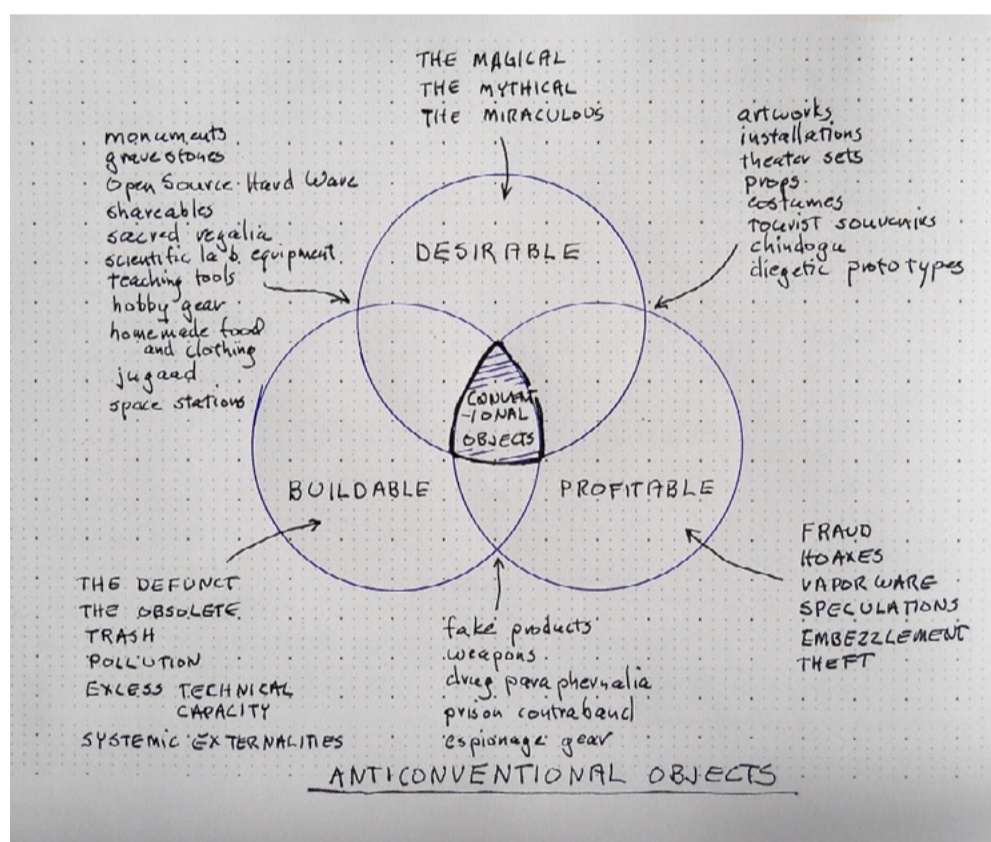 THE MAGICAL
THE MYTHICAL
THE MIRACULOUS
monuments
gravestones
Open Source Hard Ware
shareables
sacred regalia
scientific lab equipment
teaching tools
hobby gear
homemade food
and clothing
jugaad
space stations
artworks
installations
theater sets
props
costumes
TOURIST SOUVENIRS
chindogu
diegetic prototypes
DESIRABLE
CONVENT
-IONAL
OBJECTS
BUILDABLE
PROFITABLE
THE DEFUNCT
THE OBSOLETE
TRASH
POLLUTION
EXCESS TECHNICAL
CAPACITY
SYSTEMIC EXTERNALITIES
fake products
weapons
drug paraphernalia
prison contraband
espionage gear
FRAUD
HOAXES
VAPOR WARE
SPECULATIONS
EMBEZZLEMENT
THEFT
ANTICONVENTIONAL OBJECTS